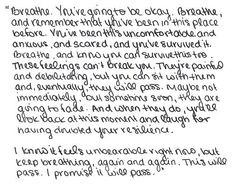 "Breathe. You're going to be okay. Breathe,
and remember that you've been in this place
before. You've been this uncomfortable and
anxious, and scared, and you've survived it.
Breathe, and know you can survive this too.
These feelings can't break you. They're painful
and debilitating, but you can sit with them
and, eventually, they will pass. Maybe not
immediately, but sometime soon, they are
going to fade. And when they do, you'll
look back at this moment and laugh for
having doubted your resilience.
I know it feels unbearable right now, but
keep breathing, again and again. This will
pass. I promise it will pass."